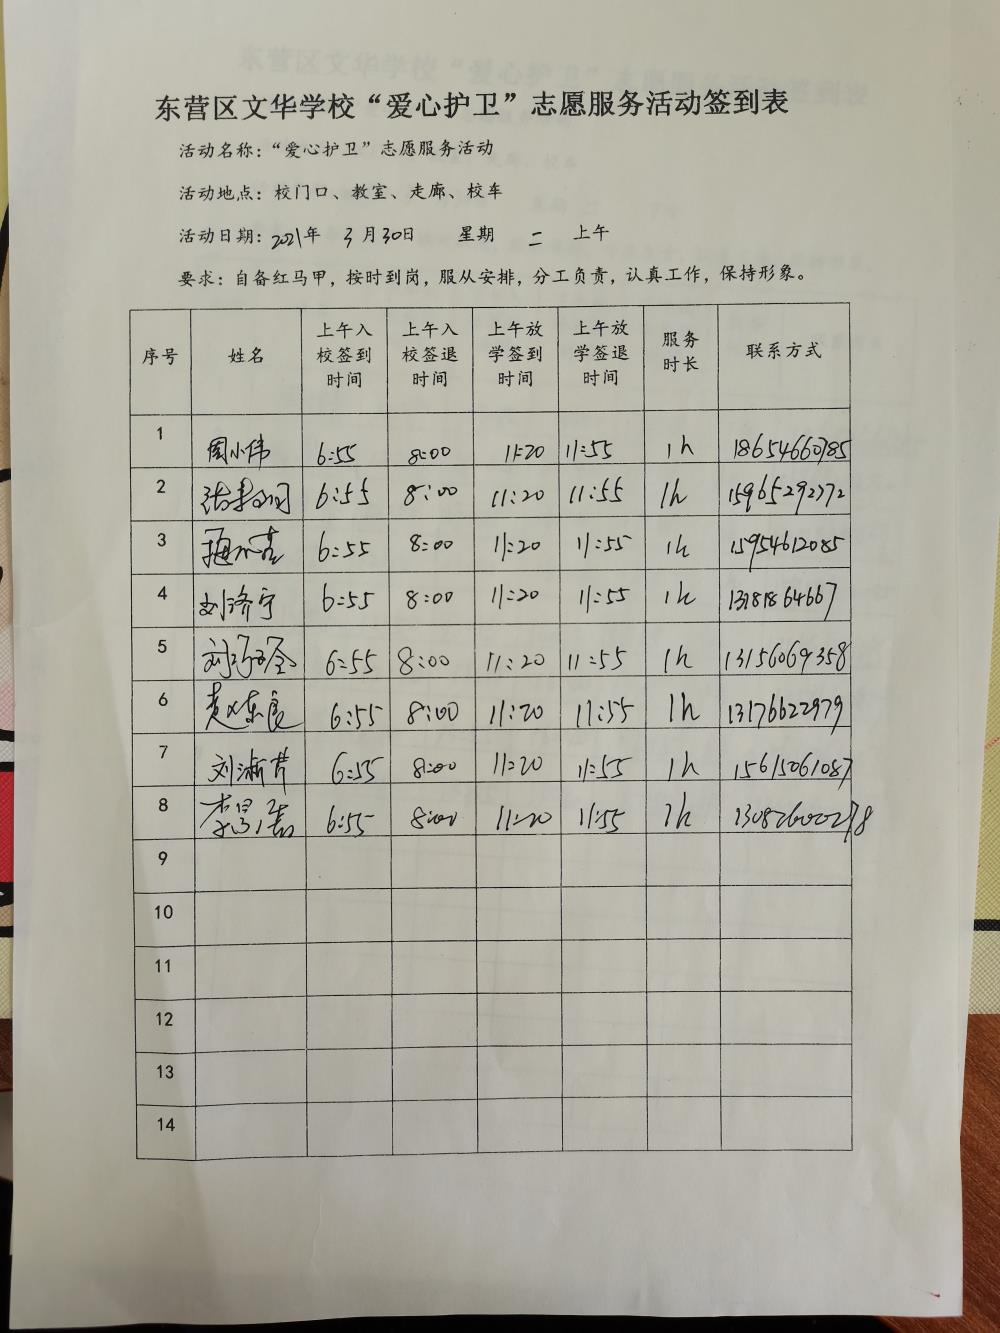 东营区文华学校“爱心护卫”志愿服务活动签到表
活动名称：“爱心护卫”志愿服务活动
活动地点：校门口、教室、走廊、校车
活动日期：2021年 3月30日 星期 二 上午
要求：自备红马甲，按时到岗，服从安排，分工负责，认真工作，保持形象。
序号 姓名 上午入校签到时间 上午入校签退时间 上午放学签到时间 上午放学签退时间 服务时长 联系方式
1 周小伟 6:55 8:00 11:20 11:55 1h 18654660785
2 6:55 8:00 11:20 11:55 1h 15965292772
3 6:55 8:00 11:20 11:55 1h 15954612085
4 刘济宁 6:55 8:00 11:20 11:55 1h 13181864667
5 6:55 8:00 11:20 11:55 1h 13156069358
6 6:55 8:00 11:20 11:55 1h 13176622979
7 刘淅芹 6:55 8:00 11:20 11:55 1h 15615061087
8 6:55 8:00 11:20 11:55 1h 13082600278
9
10
11
12
13
14